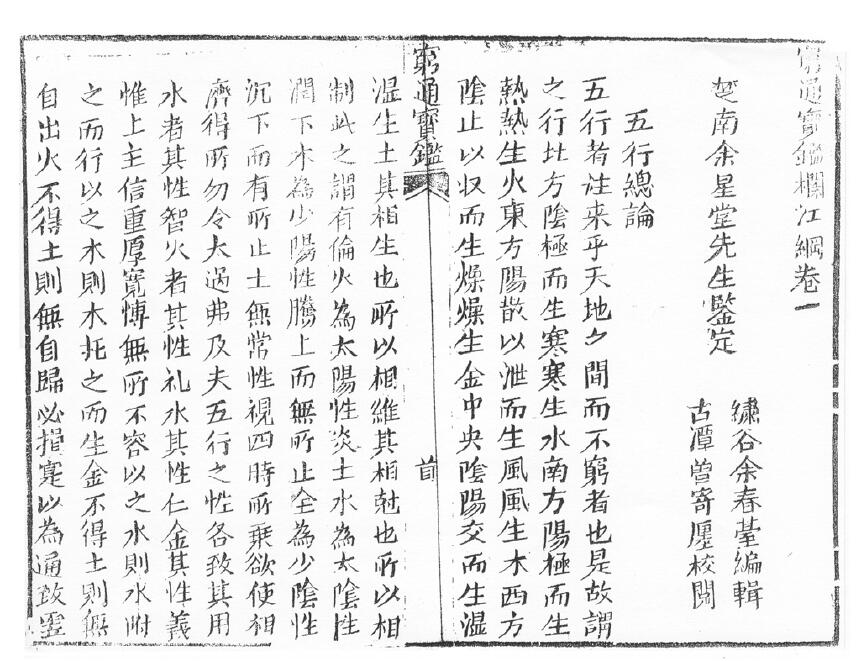 窮通寶鑑欄江網卷一
楚南余星堂先生鑒定
繡谷余春臺編輯
古潭曾寄廛校閱
五行總論
五行者往来乎天地之間而不窮者也是故謂
之行北方陰極而生寒寒生水南方陽極而生
熱熱生火東方陽散以泄而生風風生木西方
陰止以収而生燥燥生金中央陰陽交而生湿
窮通寶鑑
首
湿生土其相生也所以相維其相尅也所以相
制此之謂有倫火為太陽性炎上水為太陰性
潤下木為少陽性騰上而無所止全為少陰性
沉下而有所止土無常性視四時所乗欲使相
濟得所勿令大過弗及夫五行之性各致其用
水者其性智火者其性礼水其性仁金其性義
惟上主信重厚寛愽無所不容以之水則水附
之而行以之木則木托之而生金不得土則無
自出火不得土則無自歸必損寔以為通致虚